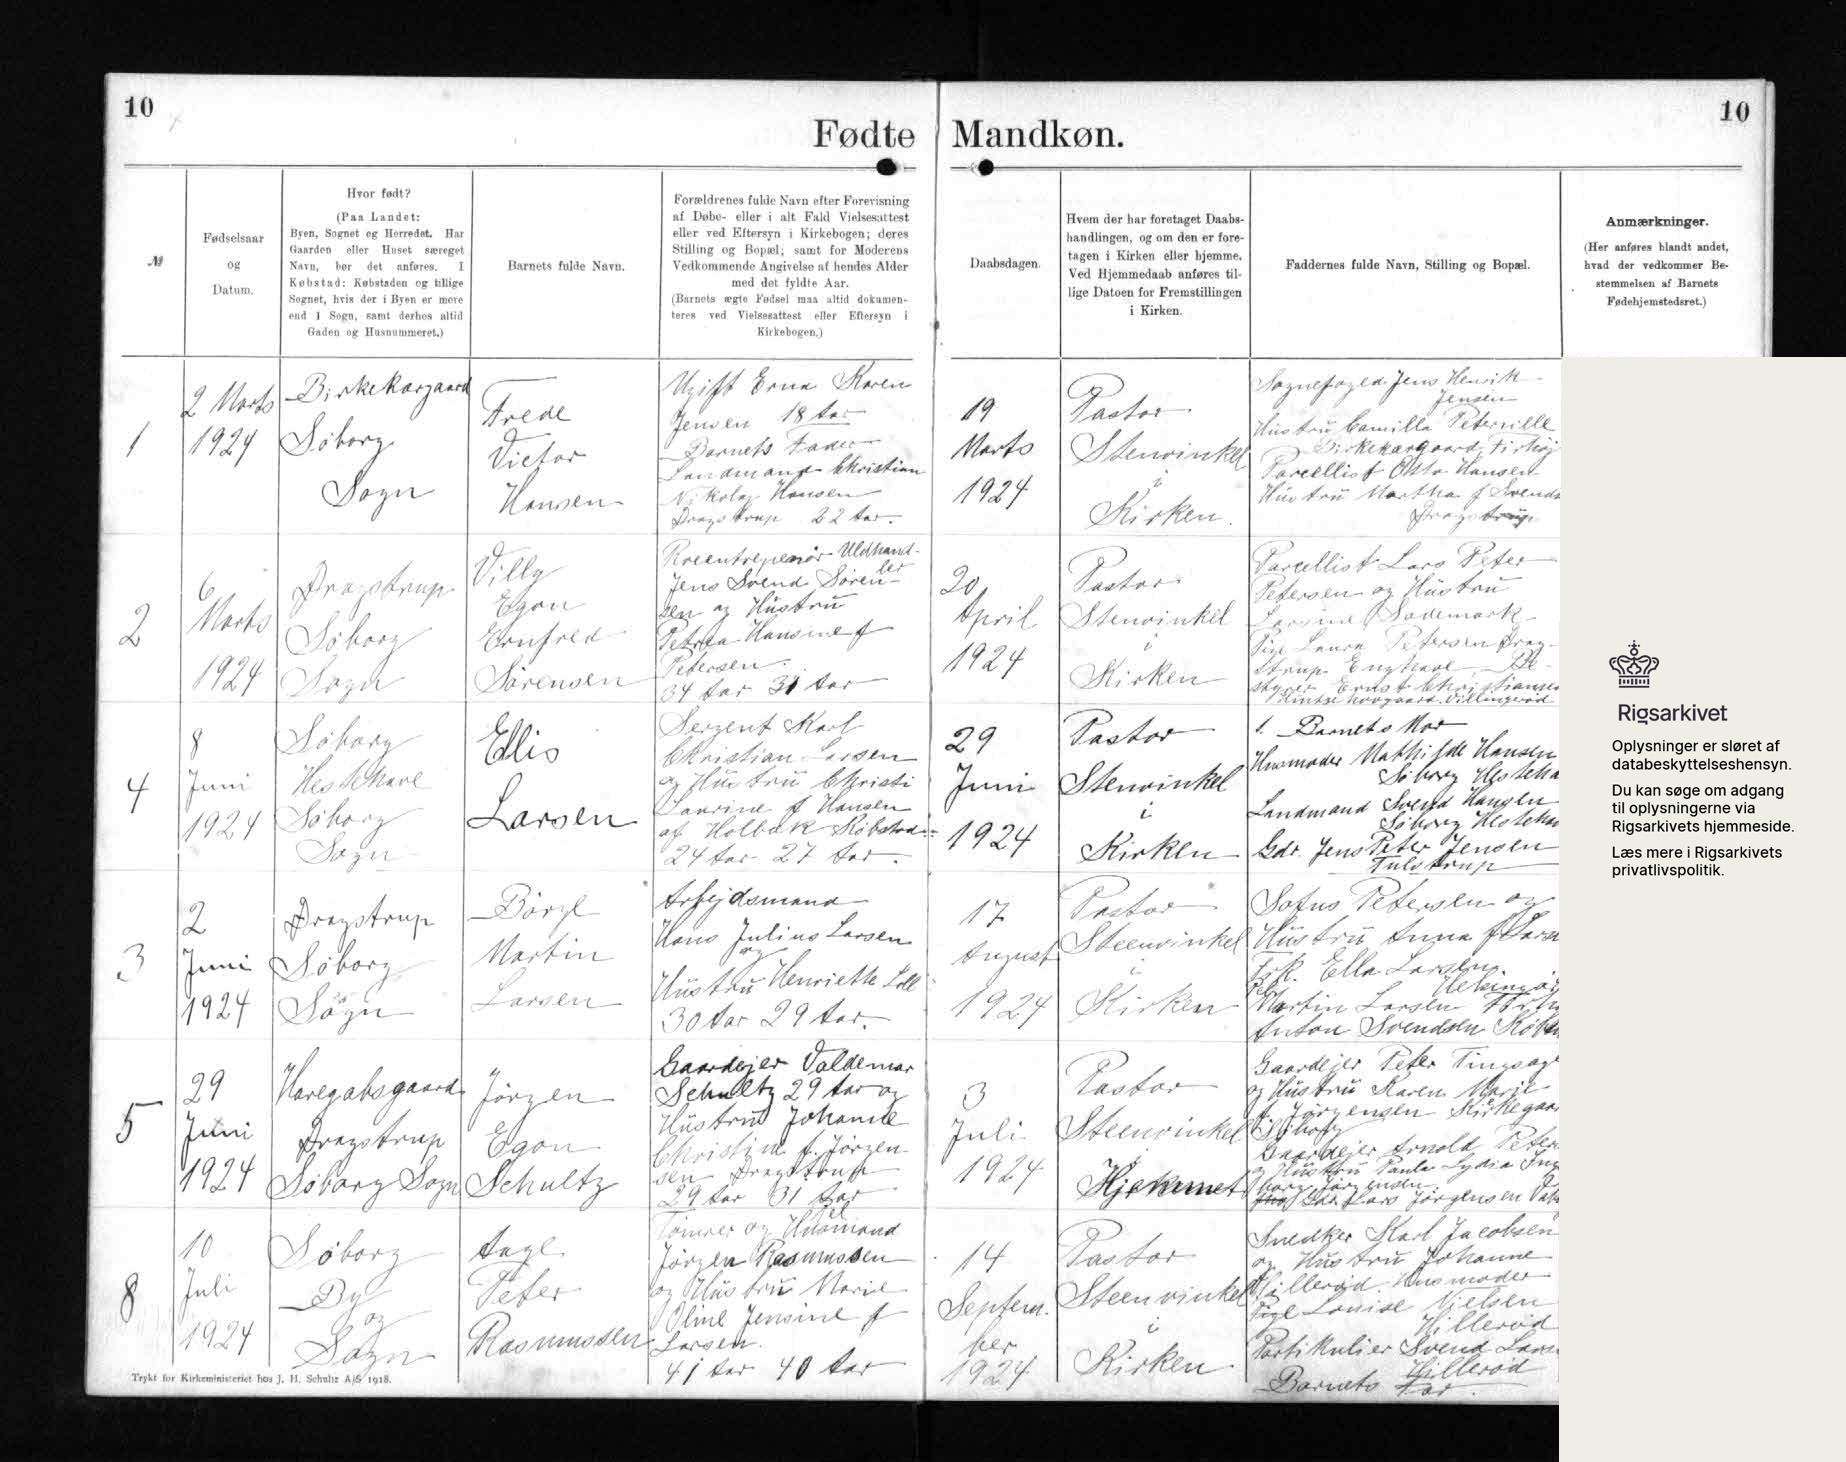 10
10
Fødte Mandkøn.
№
Fødselsaar
og
Datum.
Hvor født?
(Paa Landet:
Byen, Sognet og Herredet. Har
Gaarden eller Huset særeget
Navn, bør det anføres. I
Købstad: Købstaden og tillige
Sognet, hvis der i Byen er mere
end 1 Sogn, samt derhos altid
Gaden og Husnummeret.)
Barnets fulde Navn.
Forældrenes fulde Navn efter Forevisning
af Døbe- eller i alt Fald Vielsesattest
eller ved Eftersyn i Kirkebogen; deres
Stilling og Bopæl; samt for Moderens
Vedkommende Angivelse af hendes Alder
med det fyldte Aar.
(Barnets ægte Fødsel maa altid dokumen-
teres ved Vielsesattest eller Eftersyn i
Kirkebogen.)
Daabsdagen.
Hvem der har foretaget Daabs-
handlingen, og om den er fore-
tagen i Kirken eller hjemme.
Ved Hjemmedaab anføres til-
lige Datoen for Fremstillingen
i Kirken.
Faddernes fulde Navn, Stilling og Bopæl.
Anmærkninger.
(Her anføres blandt andet,
hvad der vedkommer Be-
stemmelsen af Barnets
Fødehjemstedsret.)
1
2 Marts
1924
Birkekærgaard
Søborg
Sogn
Frede
Victor
Hansen
Ugift Erna Karen
Jensen 18 Aar
Barnets Fader
Landmand Christian
Nikolaj Hansen
Dragstrup 22 Aar.
19
Marts
1924
Pastor
Stenvinkel
i
Kirken.
Sognefoged Jens Henrik
Jensen
Hustru Camilla Petersille
Birkekærgaard, Firhøj
Parcellist Otto Hansen
Hustru Martha f Svends
Dragstrup
2
6
Marts
1924
Dragstrup
Søborg
Sogn
Villy
Egon
Ernfred
Sørensen
Uldhand-
ler
Jens Svend Søren-
sen og Hustru
Petrea Hansine f
Petersen.
34 Aar 31 Aar
20
April
1924
Pastor
Stenvinkel
i
Kirken
Parcellist Lars Peter
Petersen og Hustru
Larsine Sademark
Pige Laura Petersen Drag-
strup Enghave, Be-
styrer Ernst Christiansen
Villingerød
4
8
Juni
1924
Søborg
Hestehave
Søborg
Sogn
Ellis
Larsen
Sergent Karl
Christian Larsen
og Hustru Christi
Laurine f Hansen
af Holbæk Købstad
24 Aar 27 Aar.
29
Juni
1924
Pastor
Stenvinkel
i
Kirken
1. Barnets Mor
Husmoder Mathilde Hansen
Søborg Hesteha
Landmand Svend Hansen
Søborg Hestehav
Gdr. Jens Peter Jensen
Tulstrup
3
2
Juni
1924
Dragstrup
Søborg
Sogn
Børge
Martin
Larsen
Arbejdsmand
Hans Julius Larsen
og
Hustru Henriette Lell
30 Aar 29 Aar.
17
August
1924
Pastor
Steenvinkel
i
Kirken
Sofus Petersen og
Hustru Anna f Lars
Frk. Ella Larsen.
Helsingø
Martin Larsen
Anton Svendsen Købe
5
29
Juni
1924
Haregabsgaard
Dragstrup
Søborg Sogn
Jørgen
Egon
Schultz
Gaardejer Valdemar
Schultz 29 Aar og
Hustru Johanne
Christine f. Jørgen-
sen Dragstrup
29 Aar 31 Aar
3
Juli
1924
Pastor
Steenvinkel
i
Hjemmet
Gaardejer Peter Tingsage
og Hustru Karen Marie
f. Jørgensen Kirkegaar
Søborg
Gaardejer Arnold Peter
og Hustru Paula Lydia Ing
borg Jørgensen.
Gdr. Lars Jørgensen
8
10
Juli
1924
Søborg
By
og
Sogn
Aage
Peter
Rasmussen
Tømrer og Husmand
Jørgen Rasmussen
og Hustru Marie
Oline Jensine f
Larsen.
41 Aar 40 Aar
14
Septem.
ber
1924
Pastor
Steenvinkel
i
Kirken
Snedker Karl Jacobsen
og Hustru Johanne
Hillerød. Husmoder
Pige Louise Nielsen
Hillerød
Partikulier Svend Lars
Hillerød
Barnets Far.
Trykt for Kirkeministeriet hos J. H. Schultz A/S 1918.
Rigsarkivet
Oplysninger er sløret af
databeskyttelseshensyn.
Du kan søge om adgang
til oplysningerne via
Rigsarkivets hjemmeside.
Læs mere i Rigsarkivets
privatlivspolitik.